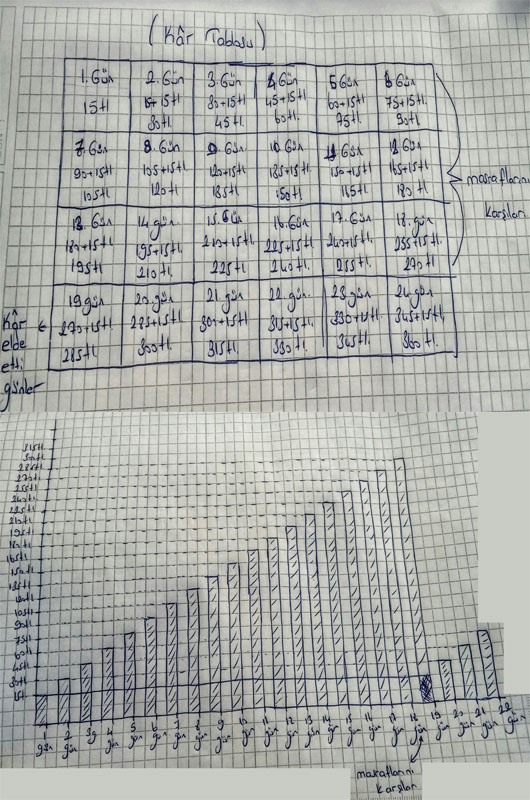 (Kâr Tablosu)
1. Gün
15tl
2. Gün
15+15tl
30tl
3. Gün
30+15tl
45tl.
4. Gün
45+15tl
60tl.
5. Gün
60+15tl
75tl.
6. Gün
75+15tl.
90tl.
7. Gün
90+15tl
105tl
8. Gün
105+15tl
120tl
9. Gün
120+15tl
135tl
10. Gün
135+15tl.
150tl
11. Gün
150+15tl
165tl
12. Gün
165+15tl
180tl
13. Gün
180+15tl
195tl
14. gün
195+15tl.
210tl.
15. Gün
210+15tl
225tl
16. Gün
225+15tl
240tl
17. Gün
240+15tl.
255tl
18. gün
255+15tl.
270tl
19 gün
270+15tl
285tl.
20. gün
285+15tl.
300tl.
21. gün
300+15tl
315tl.
22. gün.
315+15tl.
330tl.
23. gün
330+15tl.
345tl.
24. gün
345+15tl.
360tl.
masraflarını
karşılar
Kâr
elde
etti
günler
315tl
300tl
285tl
270tl
255tl
240tl
225tl
210tl
195tl
180tl
165tl
150tl
135tl
120tl
105tl
90tl
75tl
60tl
45tl
30tl
15tl
1 gün
2 gün
3 g
4 gün
5 gün
6 gün
7 gün
8 gün
9 gün
10 gün
11 gün
12 gün
13 gün
14 gün
15 gün
16 gün
17 gün
18 gün
19 gün
20 gün
21 gün
22 gün
masraflarını
karşılar